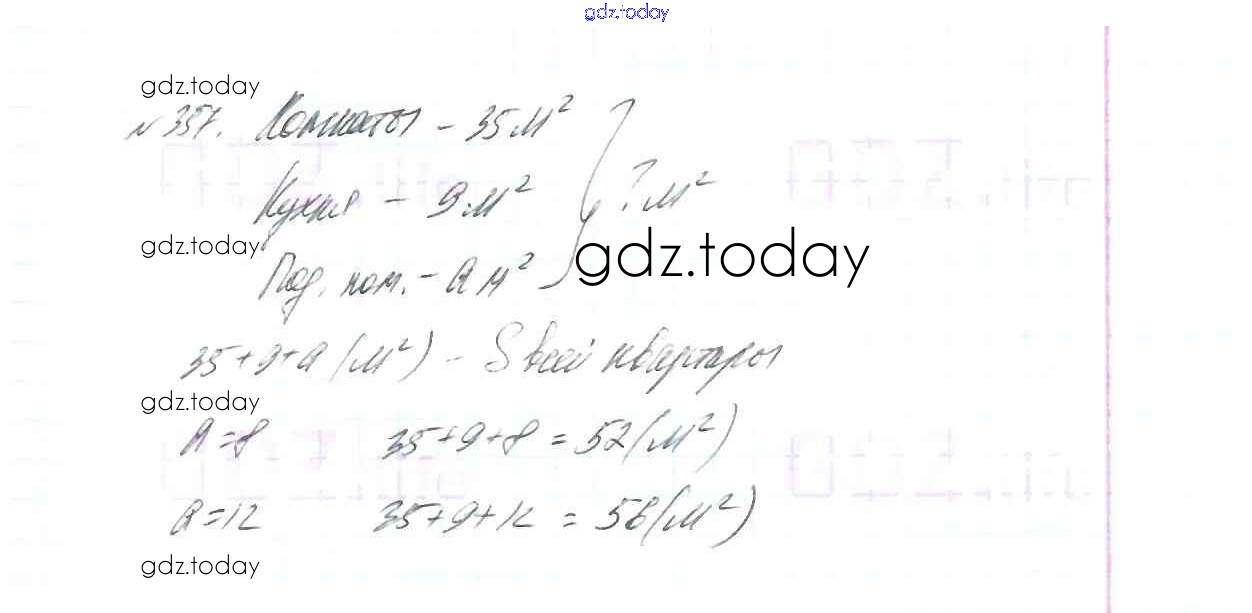 gdz.today
gdz.today
№357. Комнаты - 35 м²
Кухня - 9 м² } ? м²
gdz.today
gdz.today
Под. пом. - a м²
35+9+a (м²) - S всей квартиры
gdz.today
a=8 35+9+8 = 52 (м²)
a=12 35+9+12 = 56 (м²)
gdz.today